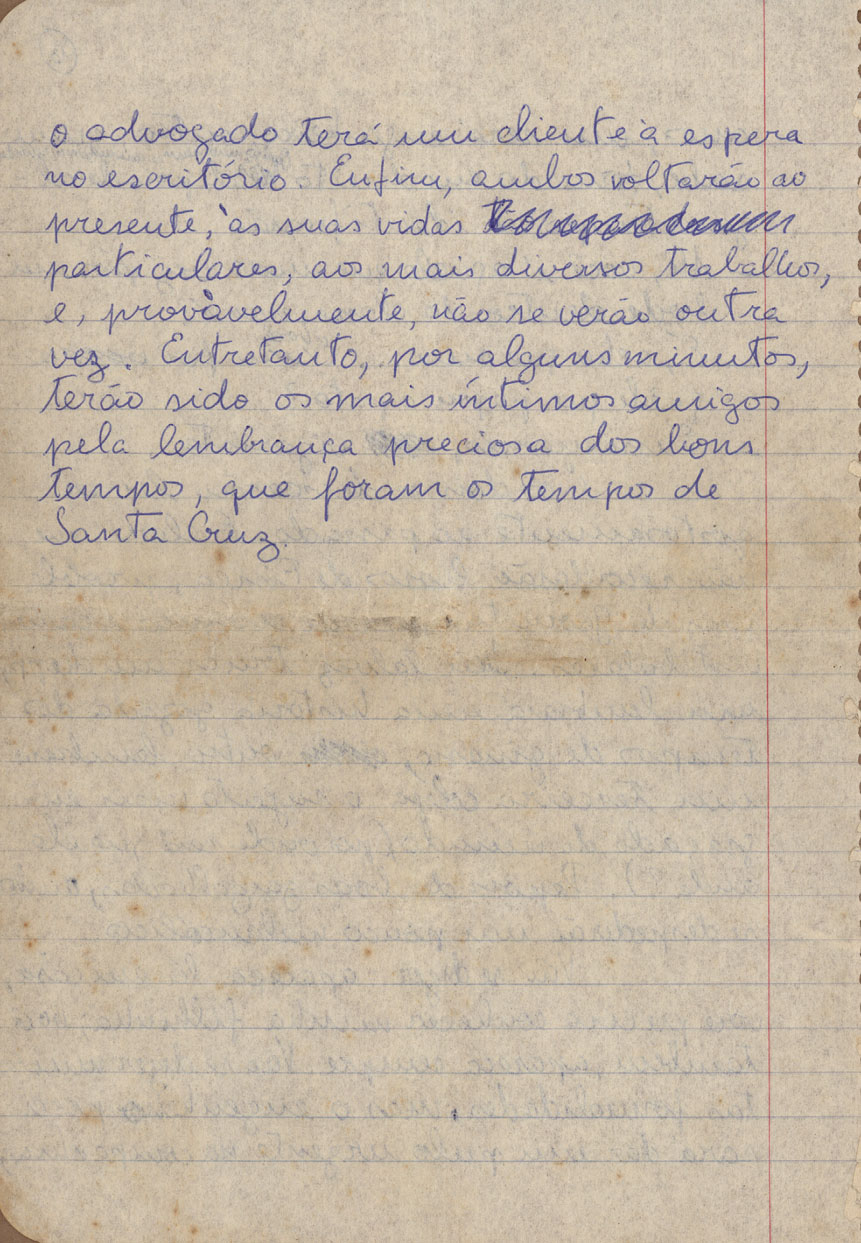 o advogado terá um cliente à espera
no escritório. Enfim, ambos voltarão ao
presente, às suas vidas
particulares, aos mais diversos trabalhos,
e, provàvelmente, não se verão outra
vez. Entretanto, por alguns minutos,
terão sido os mais íntimos amigos
pela lembrança preciosa dos bons
tempos, que foram os tempos de
Santa Cruz.